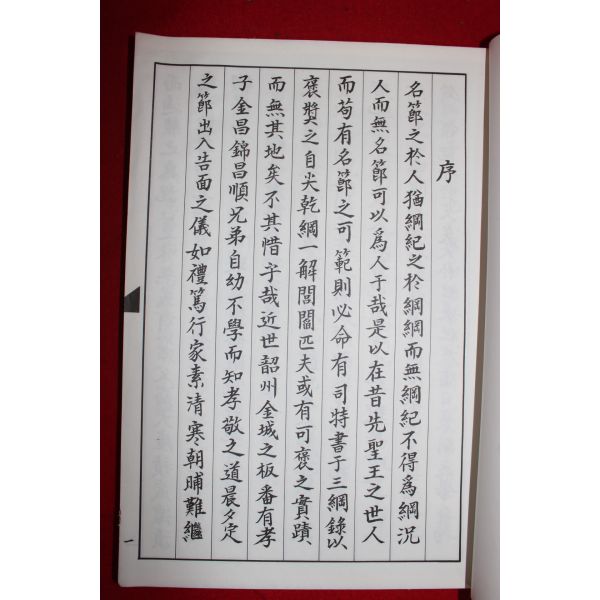 序
名節之於人猶綱紀之於綱綱而無綱紀不得爲綱況
人而無名節可以爲人于哉是以在昔先聖王之世人
而苟有名節之可範則必命有司特書于三綱錄以
褒奬之自尖乾綱一解閭閻匹夫或有可褒之實蹟
而無其地矣不其惜字哉近世韶州金城之板番有孝
子金昌錦昌順兄弟自幼不學而知孝敬之道晨夕定
之節出入告面之儀如禮篤行家素清寒朝晡難繼
一